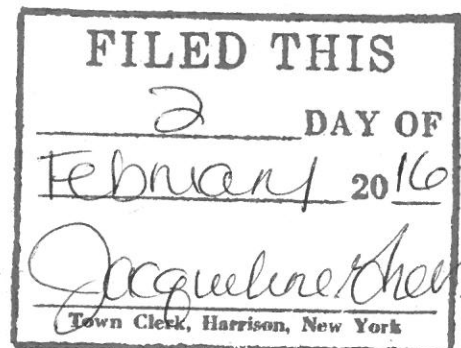 FILED THIS
2 DAY OF
February 2016
Jacqueline
Town Clerk, Harrison, New York